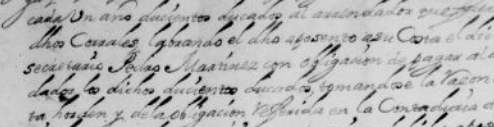 cada Un año ducientos ducados al arrendador que
dhos Corrales, labrando el dho aposento a su Costa el dho
secretario Pedro Martinez con obligacion de pagar al
dador los dichos ducientos ducados, tomandose la Razon
ta horden y de la obligacion Referida en la Contaduria de